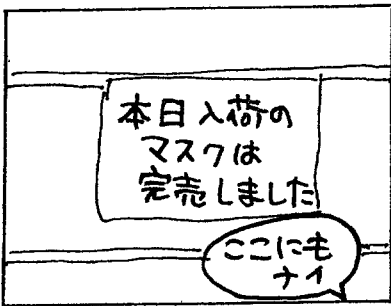 本日入荷の
マスクは
完売しました
ここにも
ナイ